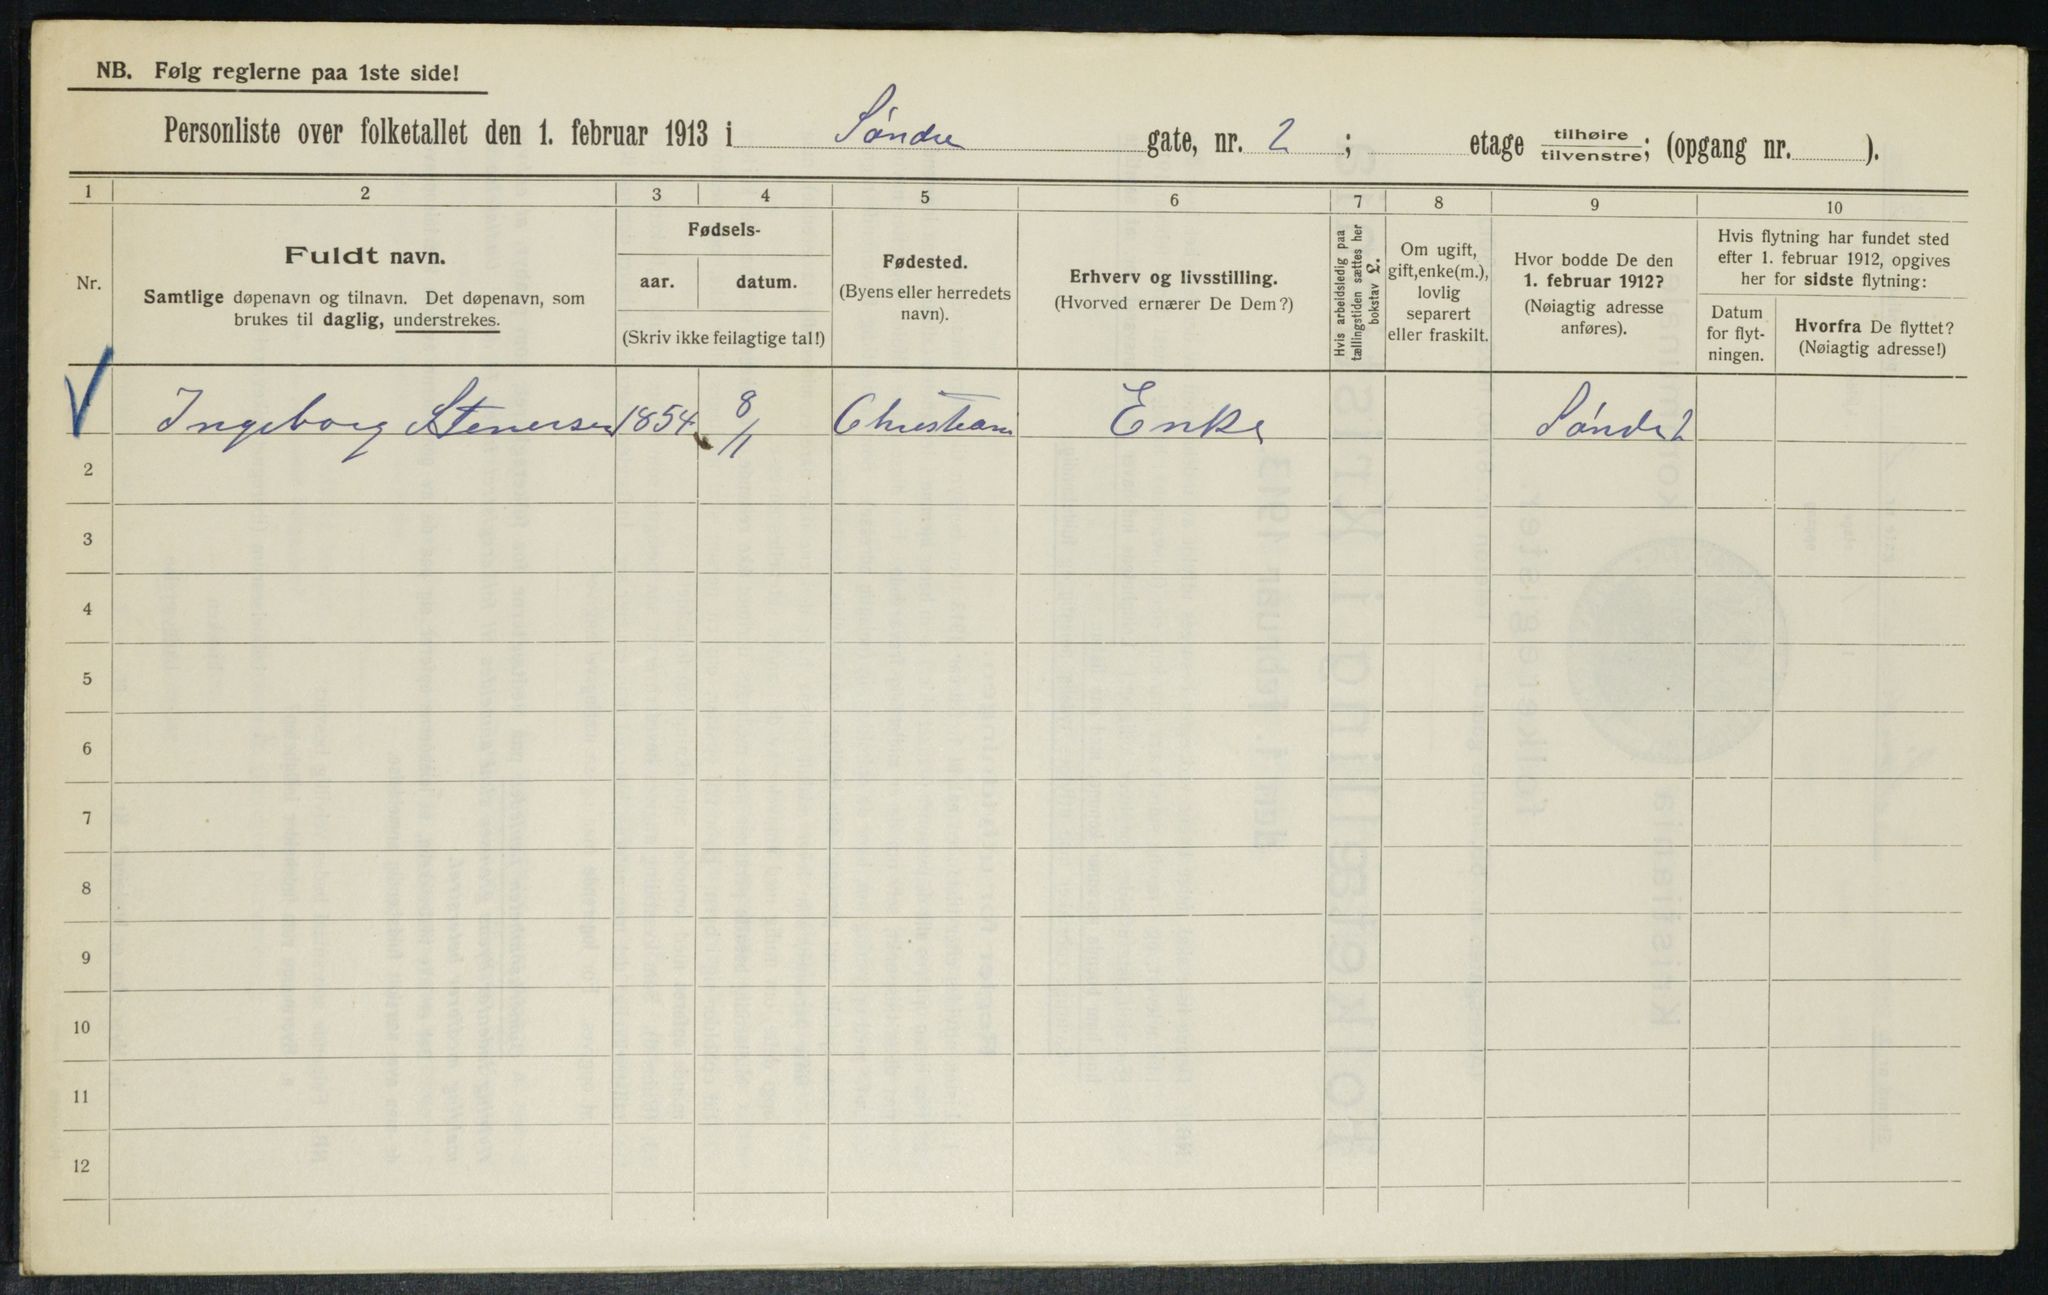 NB. Følg reglerne paa 1ste side!
Personliste over folketallet den 1. februar 1913 i Søndre gate, nr. 2 ; etage tilhøire/tilvenstre; (opgang nr. ).
1 2 3 4 5 6 7 8 9 10
Nr.
Fuldt navn.
Samtlige døpenavn og tilnavn. Det døpenavn, som
brukes til daglig, understrekes.
Fødsels-
aar. datum.
(Skriv ikke feilagtige tal!)
Fødested.
(Byens eller herredets
navn).
Erhverv og livsstilling.
(Hvorved ernærer De Dem?)
Hvis arbeidsledig paa
tællingstiden sættes her
bokstav L.
Om ugift,
gift, enke(m.),
lovlig
separert
eller fraskilt.
Hvor bodde De den
1. februar 1912?
(Nøiagtig adresse
anføres).
Hvis flytning har fundet sted
efter 1. februar 1912, opgives
her for sidste flytning:
Datum
for flyt-
ningen.
Hvorfra De flyttet?
(Nøiagtig adresse!)
Ingeborg Stenersen 1854 8/11 Christiania Enke Søndre 2
2
3
4
5
6
7
8
9
10
11
12